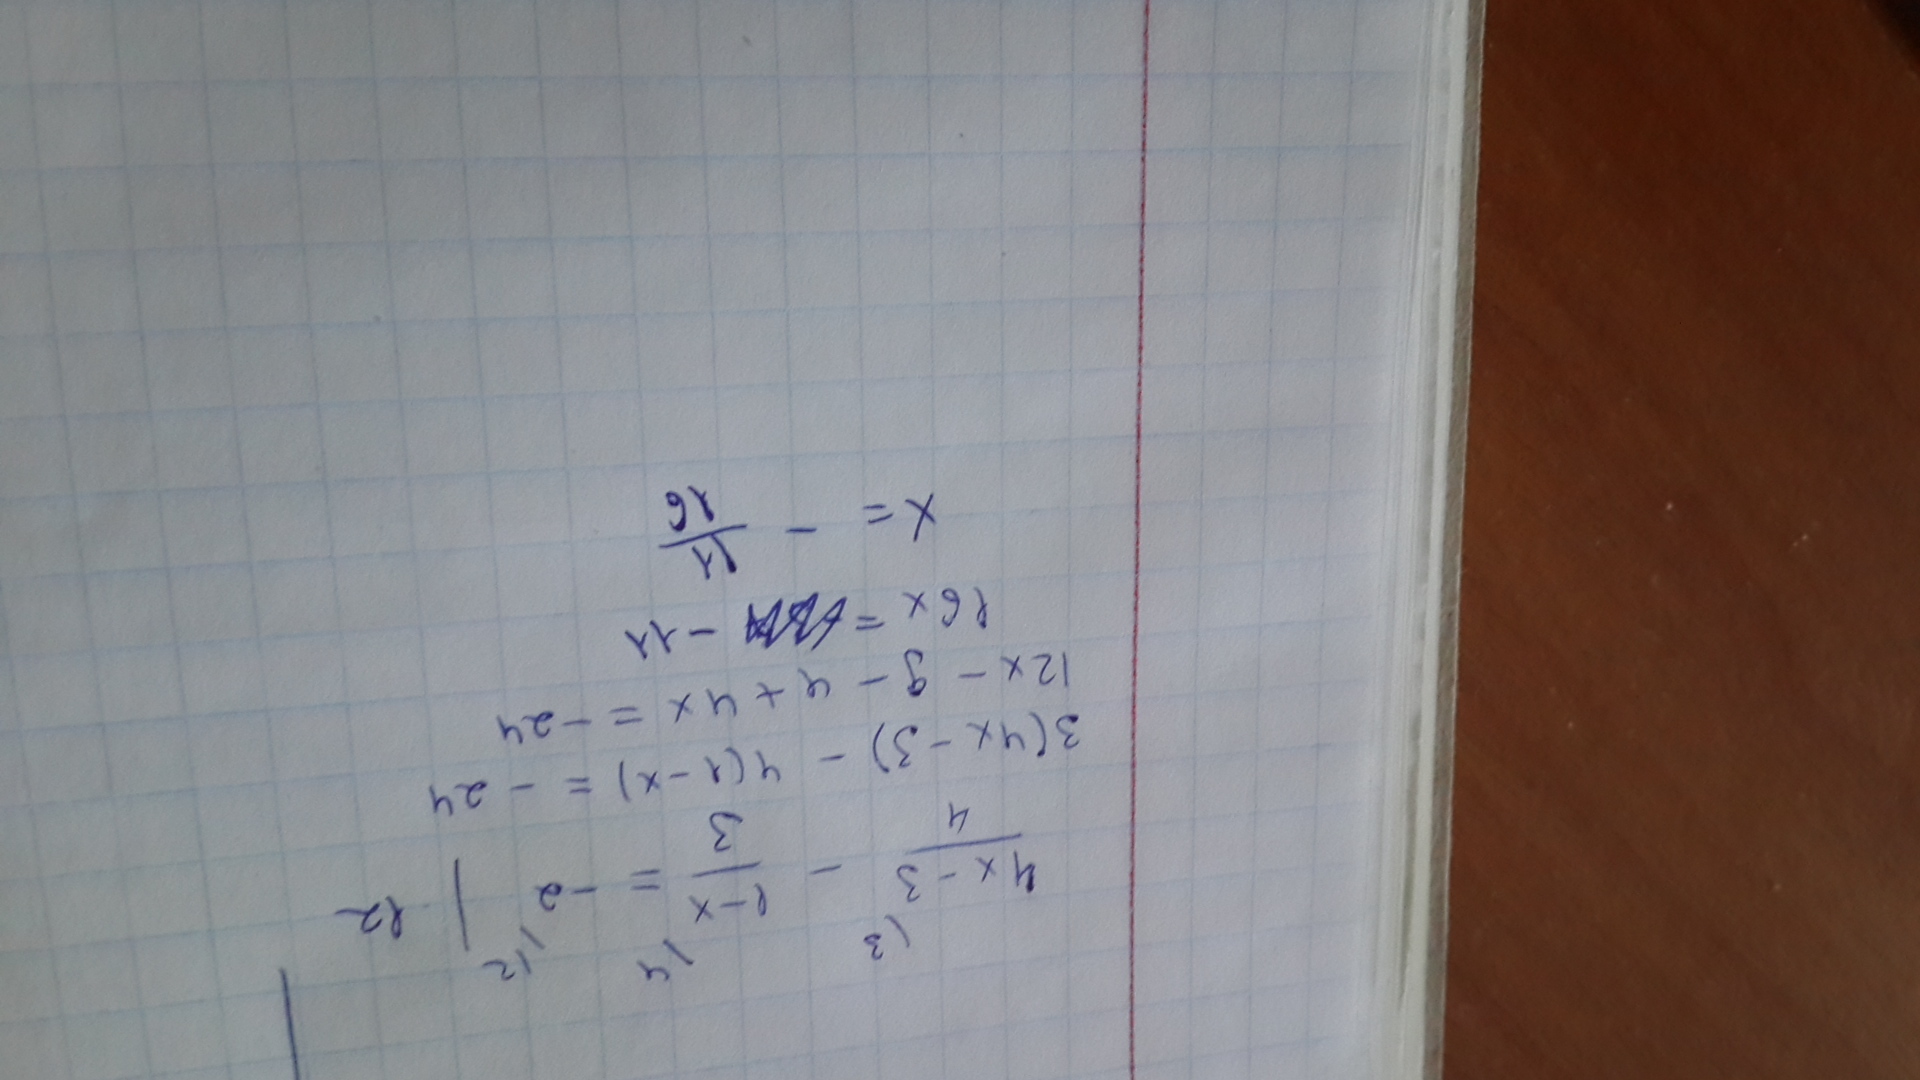 (3 /4 /12
4x-3/4 - 1-x/3 = -2 | 12
3(4x-3) - 4(1-x) = -24
12x - 9 - 4 + 4x = -24
16x = -11
x = - 11/16